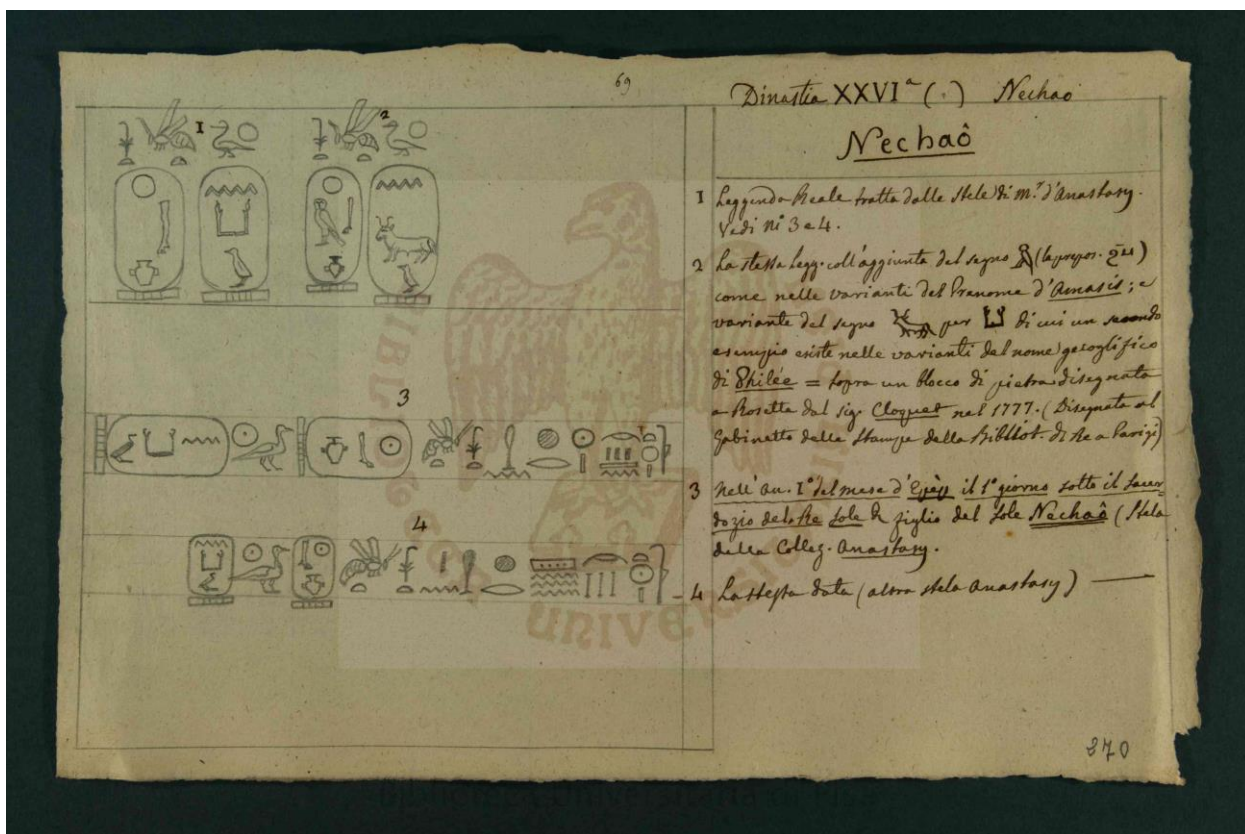 69
Dinastia XXVIª (.) Nechao
Nechaô
1 Leggenda Reale tratta dalle Stele di m.r d'Anastasy.
Vedi ni 3 e 4.
2 La stessa legg. coll'aggiunta del segno (la prepos.
come nelle varianti del Prenome d'Amasis; e
variante del segno per di cui un secondo
esempio esiste nelle varianti del nome geroglifico
di Philée = sopra un blocco di pietra disegnata
a Rosetta dal sig. Cloquet nel 1777. (Disegnata al
Gabinetto delle Stampe della Bibliot. di Re a Parigi)
3 Nell'an. I° del mese d' il 1° giorno sotto il sacer-
dozio del Re Sole & figlio del Sole Nechaô (Stela
della Colleg. Anastasy.
4 La stessa data (altra stela Anastasy)
1
2
3
4
370
UNIVERSI
Biblioteca Universitaria di Pisa